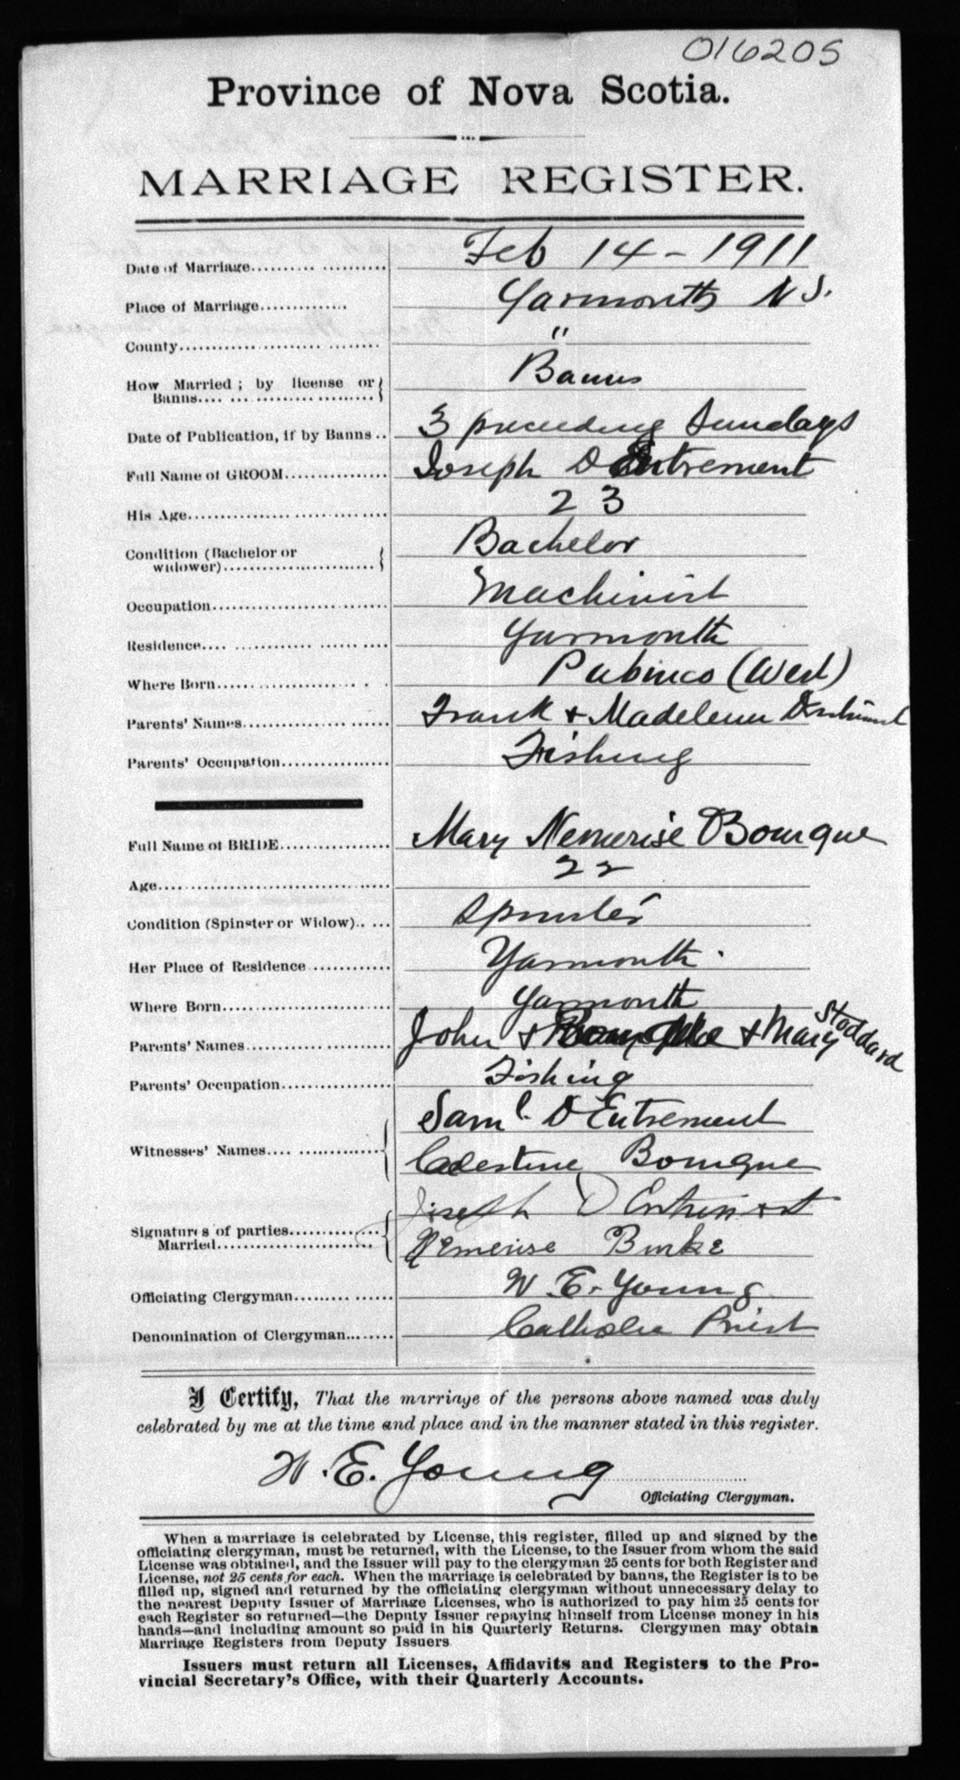 016205
Province of Nova Scotia.
MARRIAGE REGISTER.
Date of Marriage.......... Feb 14 - 1911
Place of Marriage............. Yarmouth N S.
County.......... "
How Married; by license or Banns.......... Banns
Date of Publication, if by Banns.. 3 preceeding Sundays
Full Name of GROOM.......... Joseph D Entremont
His Age.......... 23
Condition (Bachelor or widower).......... Bachelor
Occupation.......... Machinist
Residence.......... Yarmouth
Where Born.......... Pubnico (West)
Parents' Names.......... Frank + Madeleine
Parents' Occupation.......... Fishing
Full Name of BRIDE.......... Mary Nemerise Bourque
Age.......... 22
Condition (Spinster or Widow).. ... Spinster
Her Place of Residence .......... Yarmouth.
Where Born.......... Yarmouth
Parents' Names.......... John + + Mary Stoddard
Parents' Occupation.......... Fishing
Witnesses' Names.......... Saml. D Entremont
Celestine Bourque
Signatures of parties Married.......... Joseph D Entremont
Nemerise Burke
Officiating Clergyman.......... W. E. Young
Denomination of Clergyman........ Catholic Priest
I Certify, That the marriage of the persons above named was duly
celebrated by me at the time and place and in the manner stated in this register.
W. E. Young
Officiating Clergyman.
When a marriage is celebrated by License, this register, filled up and signed by the
officiating clergyman, must be returned, with the License, to the Issuer from whom the said
License was obtained, and the Issuer will pay to the clergyman 25 cents for both Register and
License, not 25 cents for each. When the marriage is celebrated by banns, the Register is to be
filled up, signed and returned by the officiating clergyman without unnecessary delay to
the nearest Deputy Issuer of Marriage Licenses, who is authorized to pay him 25 cents for
each Register so returned—the Deputy Issuer repaying himself from License money in his
hands—and including amount so paid in his Quarterly Returns. Clergymen may obtain
Marriage Registers from Deputy Issuers
Issuers must return all Licenses, Affidavits and Registers to the Pro-
vincial Secretary's Office, with their Quarterly Accounts.